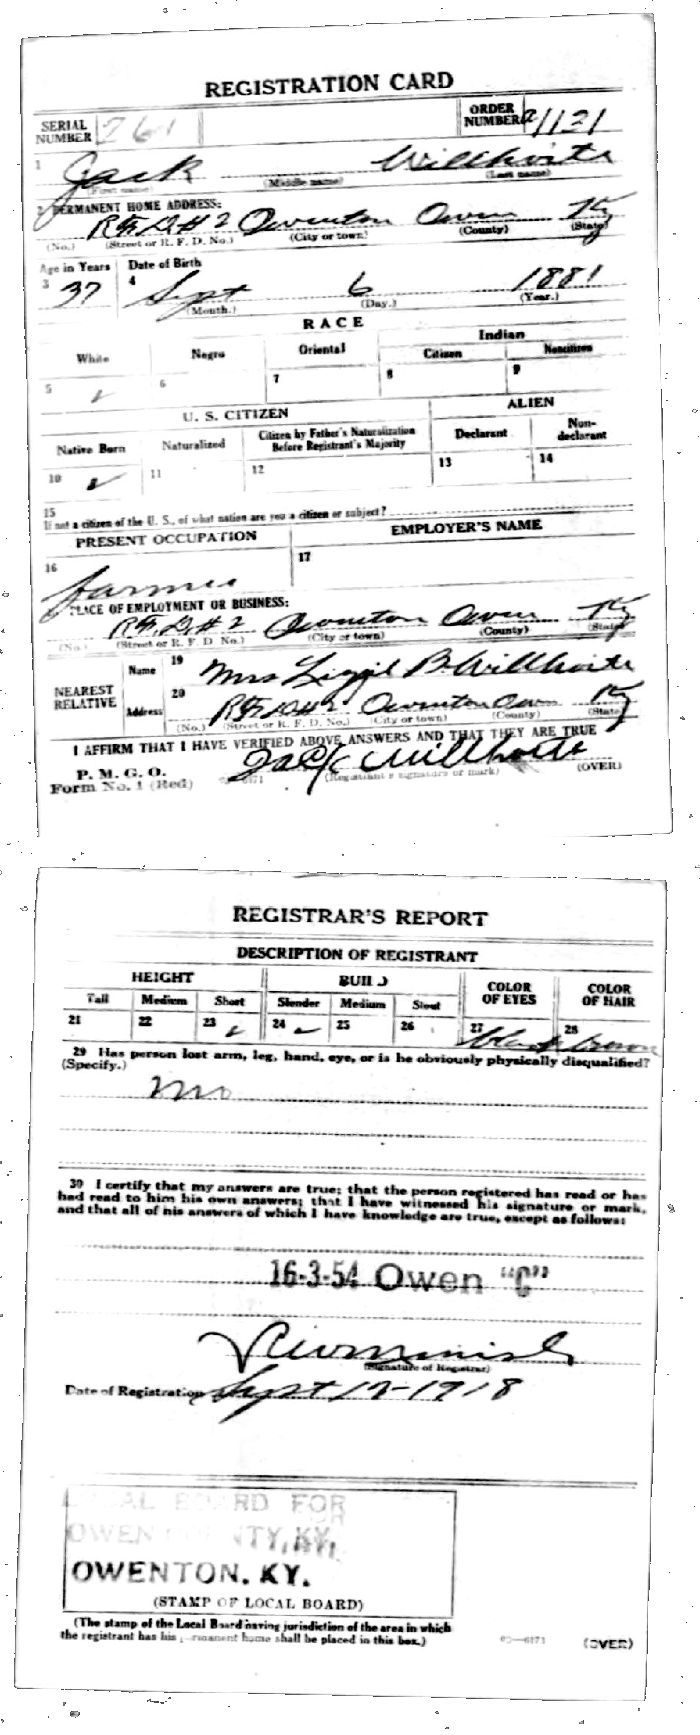 REGISTRATION CARD
SERIAL NUMBER 261
ORDER NUMBER A1121
1 Jack Willhoite
(First name) (Middle name) (Last name)
2 PERMANENT HOME ADDRESS:
R.F.D.#2 Owenton Owen Ky
(No.) (Street or R. F. D. No.) (City or town) (County) (State)
Age in Years Date of Birth
3 37 4 Sept 6 1881
(Month.) (Day.) (Year.)
RACE
White Negro Oriental Indian
Citizen Noncitizen
5 6 7 8 9
U. S. CITIZEN ALIEN
Native Born Naturalized Citizen by Father's Naturalization Before Registrant's Majority Declarant Non-declarant
10 11 12 13 14
15
If not a citizen of the U. S., of what nation are you a citizen or subject?
PRESENT OCCUPATION EMPLOYER'S NAME
16 17
farmer
PLACE OF EMPLOYMENT OR BUSINESS:
R.F.D.#2 Owenton Owen Ky
(No.) (Street or R. F. D. No.) (City or town) (County) (State)
NEAREST RELATIVE
Name 19 Mrs Lizzie B. Willhoite
Address 20 R.F.D.#2 Owenton Owen Ky
(No.) (Street or R. F. D. No.) (City or town) (County) (State)
I AFFIRM THAT I HAVE VERIFIED ABOVE ANSWERS AND THAT THEY ARE TRUE
P. M. G. O.
Form No. 1 (Red)
Jack Willhoite
(Registrant's signature or mark) (OVER)
REGISTRAR'S REPORT
DESCRIPTION OF REGISTRANT
HEIGHT BUILD COLOR OF EYES COLOR OF HAIR
Tall Medium Short Slender Medium Stout
21 22 23 24 25 26 27 28
29 Has person lost arm, leg, hand, eye, or is he obviously physically disqualified?
(Specify.)
no
30 I certify that my answers are true; that the person registered has read or has
had read to him his own answers; that I have witnessed his signature or mark,
and that all of his answers of which I have knowledge are true, except as follows:
16-3-54 Owen "C"
(Signature of Registrar)
Date of Registration Sept 12-1918
LOCAL BOARD FOR
OWEN COUNTY, KY.
OWENTON. KY.
(STAMP OF LOCAL BOARD)
(The stamp of the Local Board having jurisdiction of the area in which
the registrant has his permanent home shall be placed in this box.)
(OVER)